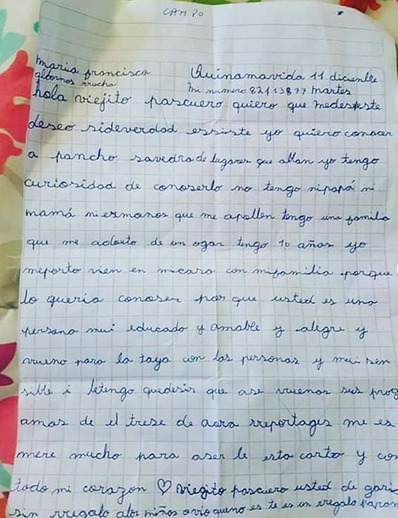 CAMPO
maria francisca Quinamavida 11 diciembre
albornos rrocha mi numero 82113877 martes
hola viejito pascuero quiero que medeseste
deseo sideverdad essiste yo quiero conocer
a pancho savedra de lugares que ablan yo tengo
curiosidad de conoserlo no tengo nipapá ni
mamá niermanos que me apollen tengo una familia
que me adocto de un ogar tengo 10 años yo
meporto vien en micara con mifamilia porque
lo queria conoser por que usted es una
persona mui educado y amable y alegre y
vueno para la taya con las personas y mui sen
sible i letengo quedesir que ase vuenos sus prog
amas de el trese de aora rreportages me es
mere mucho para aser le esta carta y con
todo mi corazon ♡ viegito pascuero usted de
sin rregalo alos niños es te es un rregalo